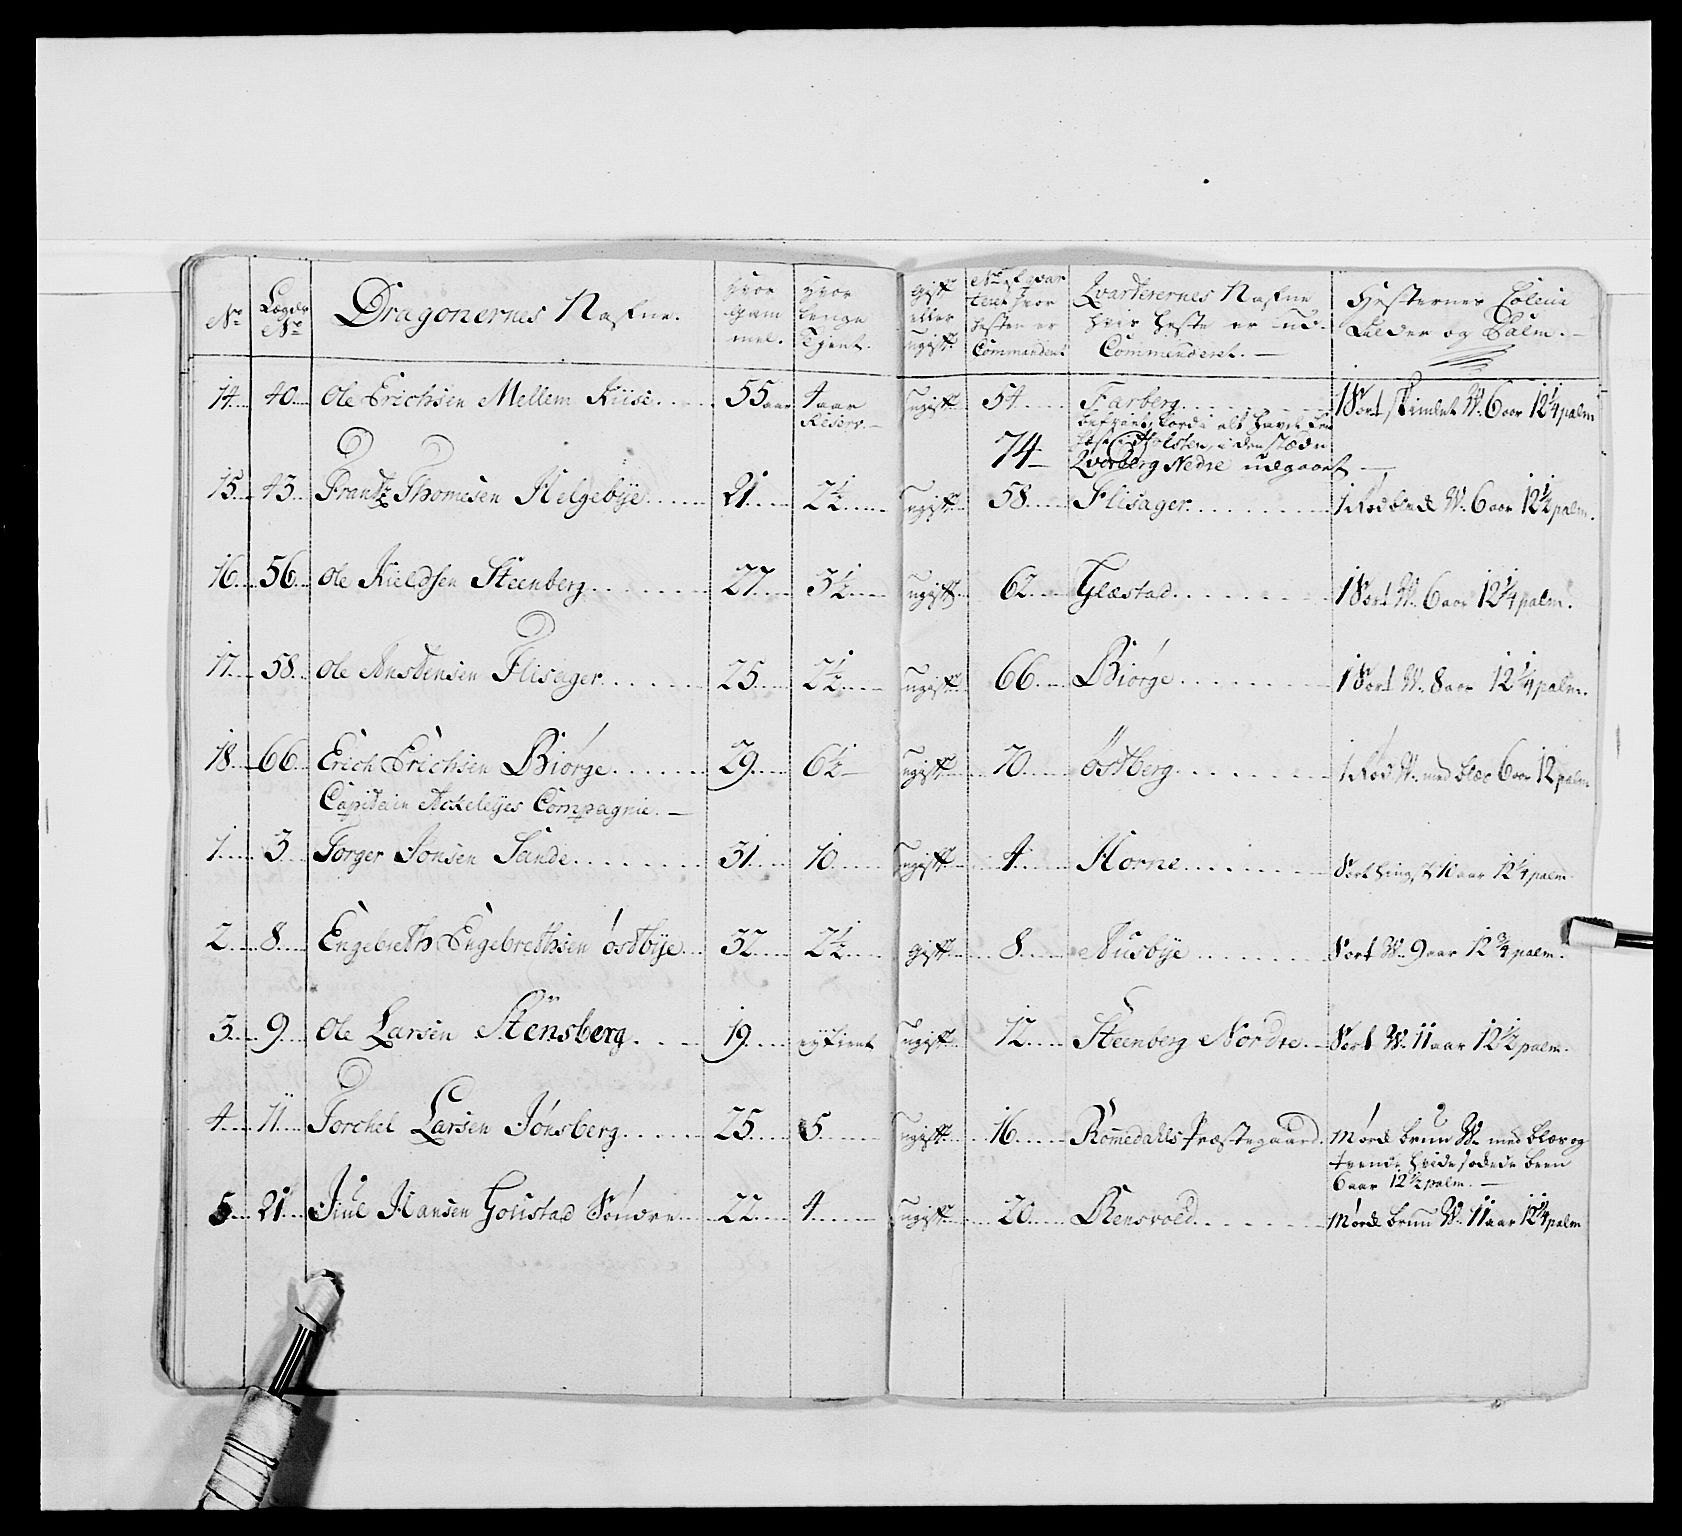 No Lægds No Dragonernes Nafne. Hvor Gam mel. Hvor lenge Tient. Gift eller ugift No af qvar teret hvor hesten er Commenderet Qvarterernes Nafne hvis heste er ud Commenderet. Hesternes Coleur Alder og Palm.
14 40 Ole Erichsen Mellem Kiise 55 aar 4 aar ugift 54 Farberg 1 Sort skimlet W. 6 aar 12 1/4 palm
Reserv.
74 Qverberg Nedre udgaaet
15 43 Frantz Thomesen Helgebye 21 2 1/2 ugift 58 Flisager 1 Rødblend W. 6 aar 12 1/2 palm.
16 56 Ole Kieldsen Steenberg 27 3 1/2 ugift 62 Glæstad 1 Sort W. 6 aar 12 1/4 palm.
17 58 Ole Anstensen Flisager 25 2 1/2 ugift 66 Biørge 1 Sort W. 8 aar 12 1/4 palm.
18 66 Erich Erichsen Biørge 29 6 1/2 ugift 70 Østberg 1 Rød W. med blæs 6 aar 12 palm
Capitain Ackeleyes Compagnie.
1 3 Torger Jonsen Sande 31 10 ugift 4 Horne Sort hingst 11 aar 12 1/4 palm
2 8 Engebreth Engebrethsen Østbye 32 2 1/2 Gift 8 Nusbye Sort W. 9 aar 12 3/4 palm.
3 9 Ole Larsen Stensberg 19 eytient ugift 12 Steenberg Nordre Sort W. 11 aar 12 1/2 palm.
4 11 Torchel Larsen Jønsberg 25 5 ugift 16 Romedahls Præstegaard Mørk brun W. med blæs og
tvende hvide sokkede been
6 aar 12 1/2 palm.
5 21 Juul Hansen Goustad Søndre 22 4 ugift 20 Rensvold Mørk brun W. 11 aar 12 1/4 palm